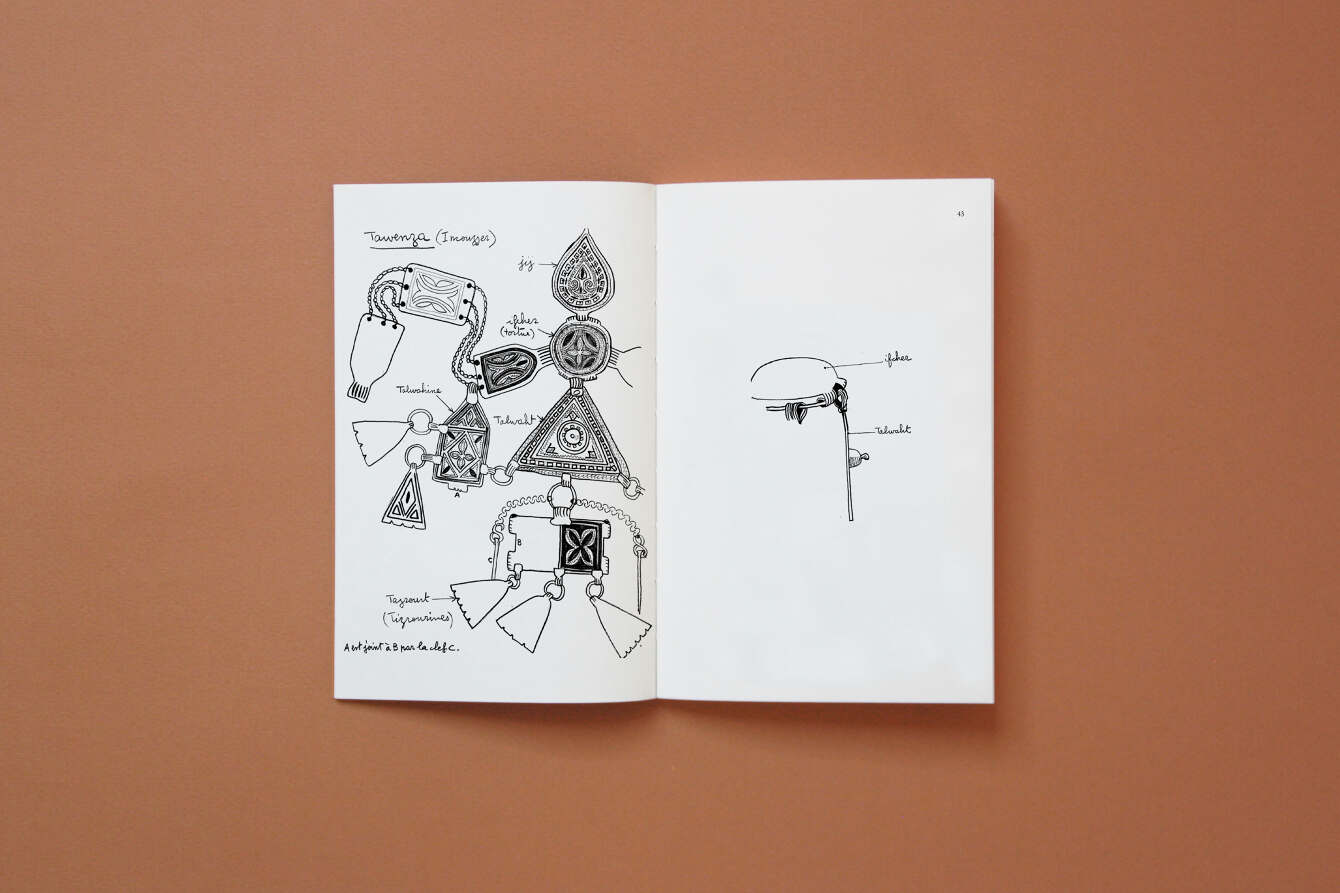 Tawenza (Imouzzer)
jij
ifcher
(tortue)
Talwakine
Talwaht
A
B
C
Tazrourt
(Tizrourines)
A est joint à B par la clef C.
43
ifcher
Talwaht